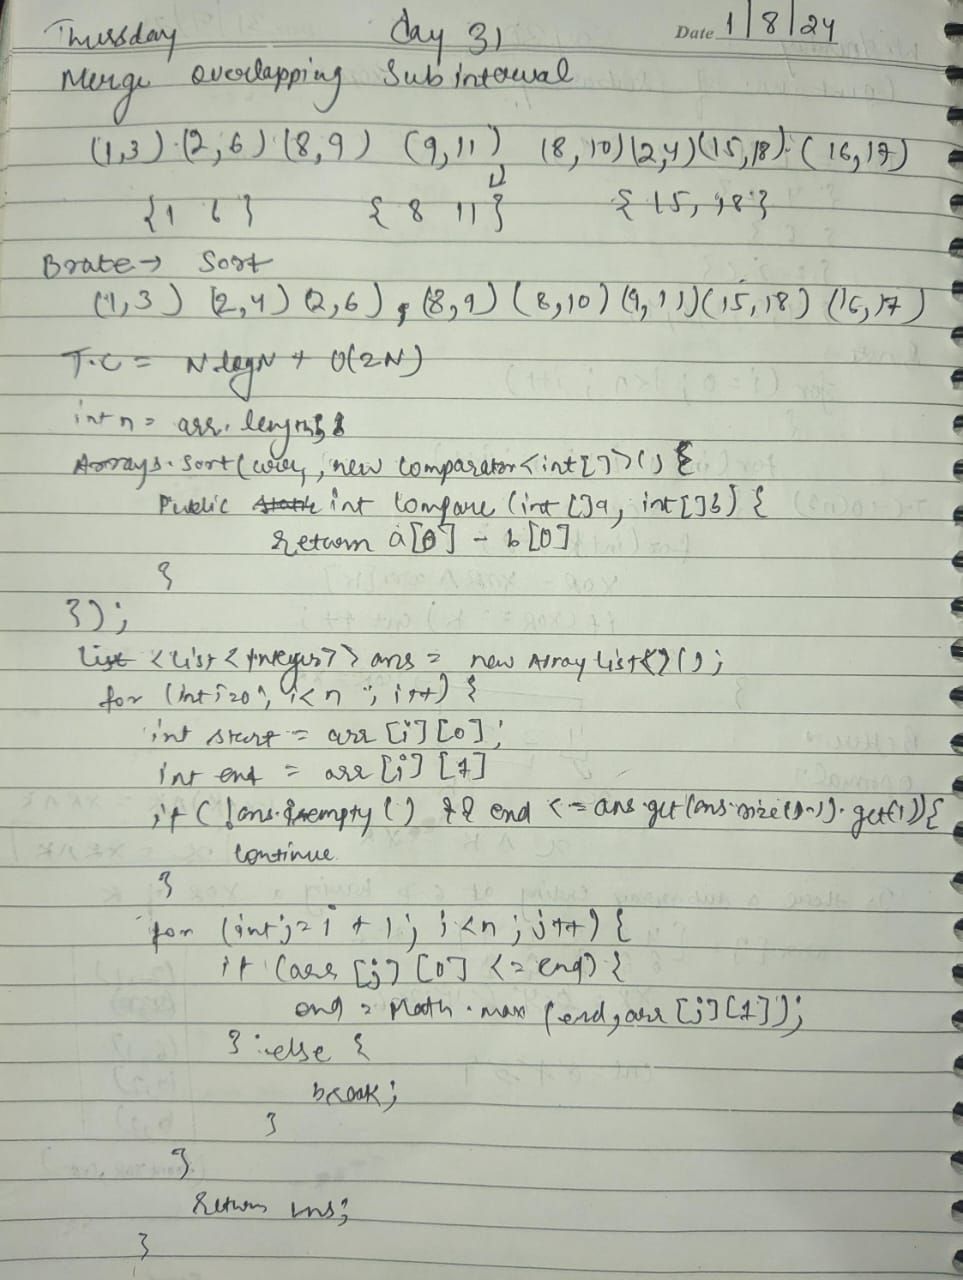 Thursday day 31 Date 1/8/24
Merge Overlapping Subinterval
(1,3) (2,6) (8,9) (9,11) (8,10) (2,4) (15,18) (16,17)
{1 6} { 8 11} { 15, 18}
Brute → Sort
(1,3) (2,4) (2,6), (8,9) (8,10) (9,11) (15,18) (16,17)
T.C = N log N + O(2N)
int n = arr. length;
Arrays. sort( , new comparator<int[]>() {
Public int compare (int []a, int[]b) {
return a[0] - b[0]
}
});
List <List<Integer>> ans = new Array list<>();
for (int i=0; i<n ; i++) {
int start = arr [i] [0];
int end = arr [i] [1]
if ( !ans. empty () && end <= ans.get(ans.size()-1).get(1)){
continue
}
for (int j=i + 1; j<n ; j++) {
if (arr [j] [0] <= end) {
end = Math . max (end, arr [j][1]);
} else {
break;
}
}
return ans;
}